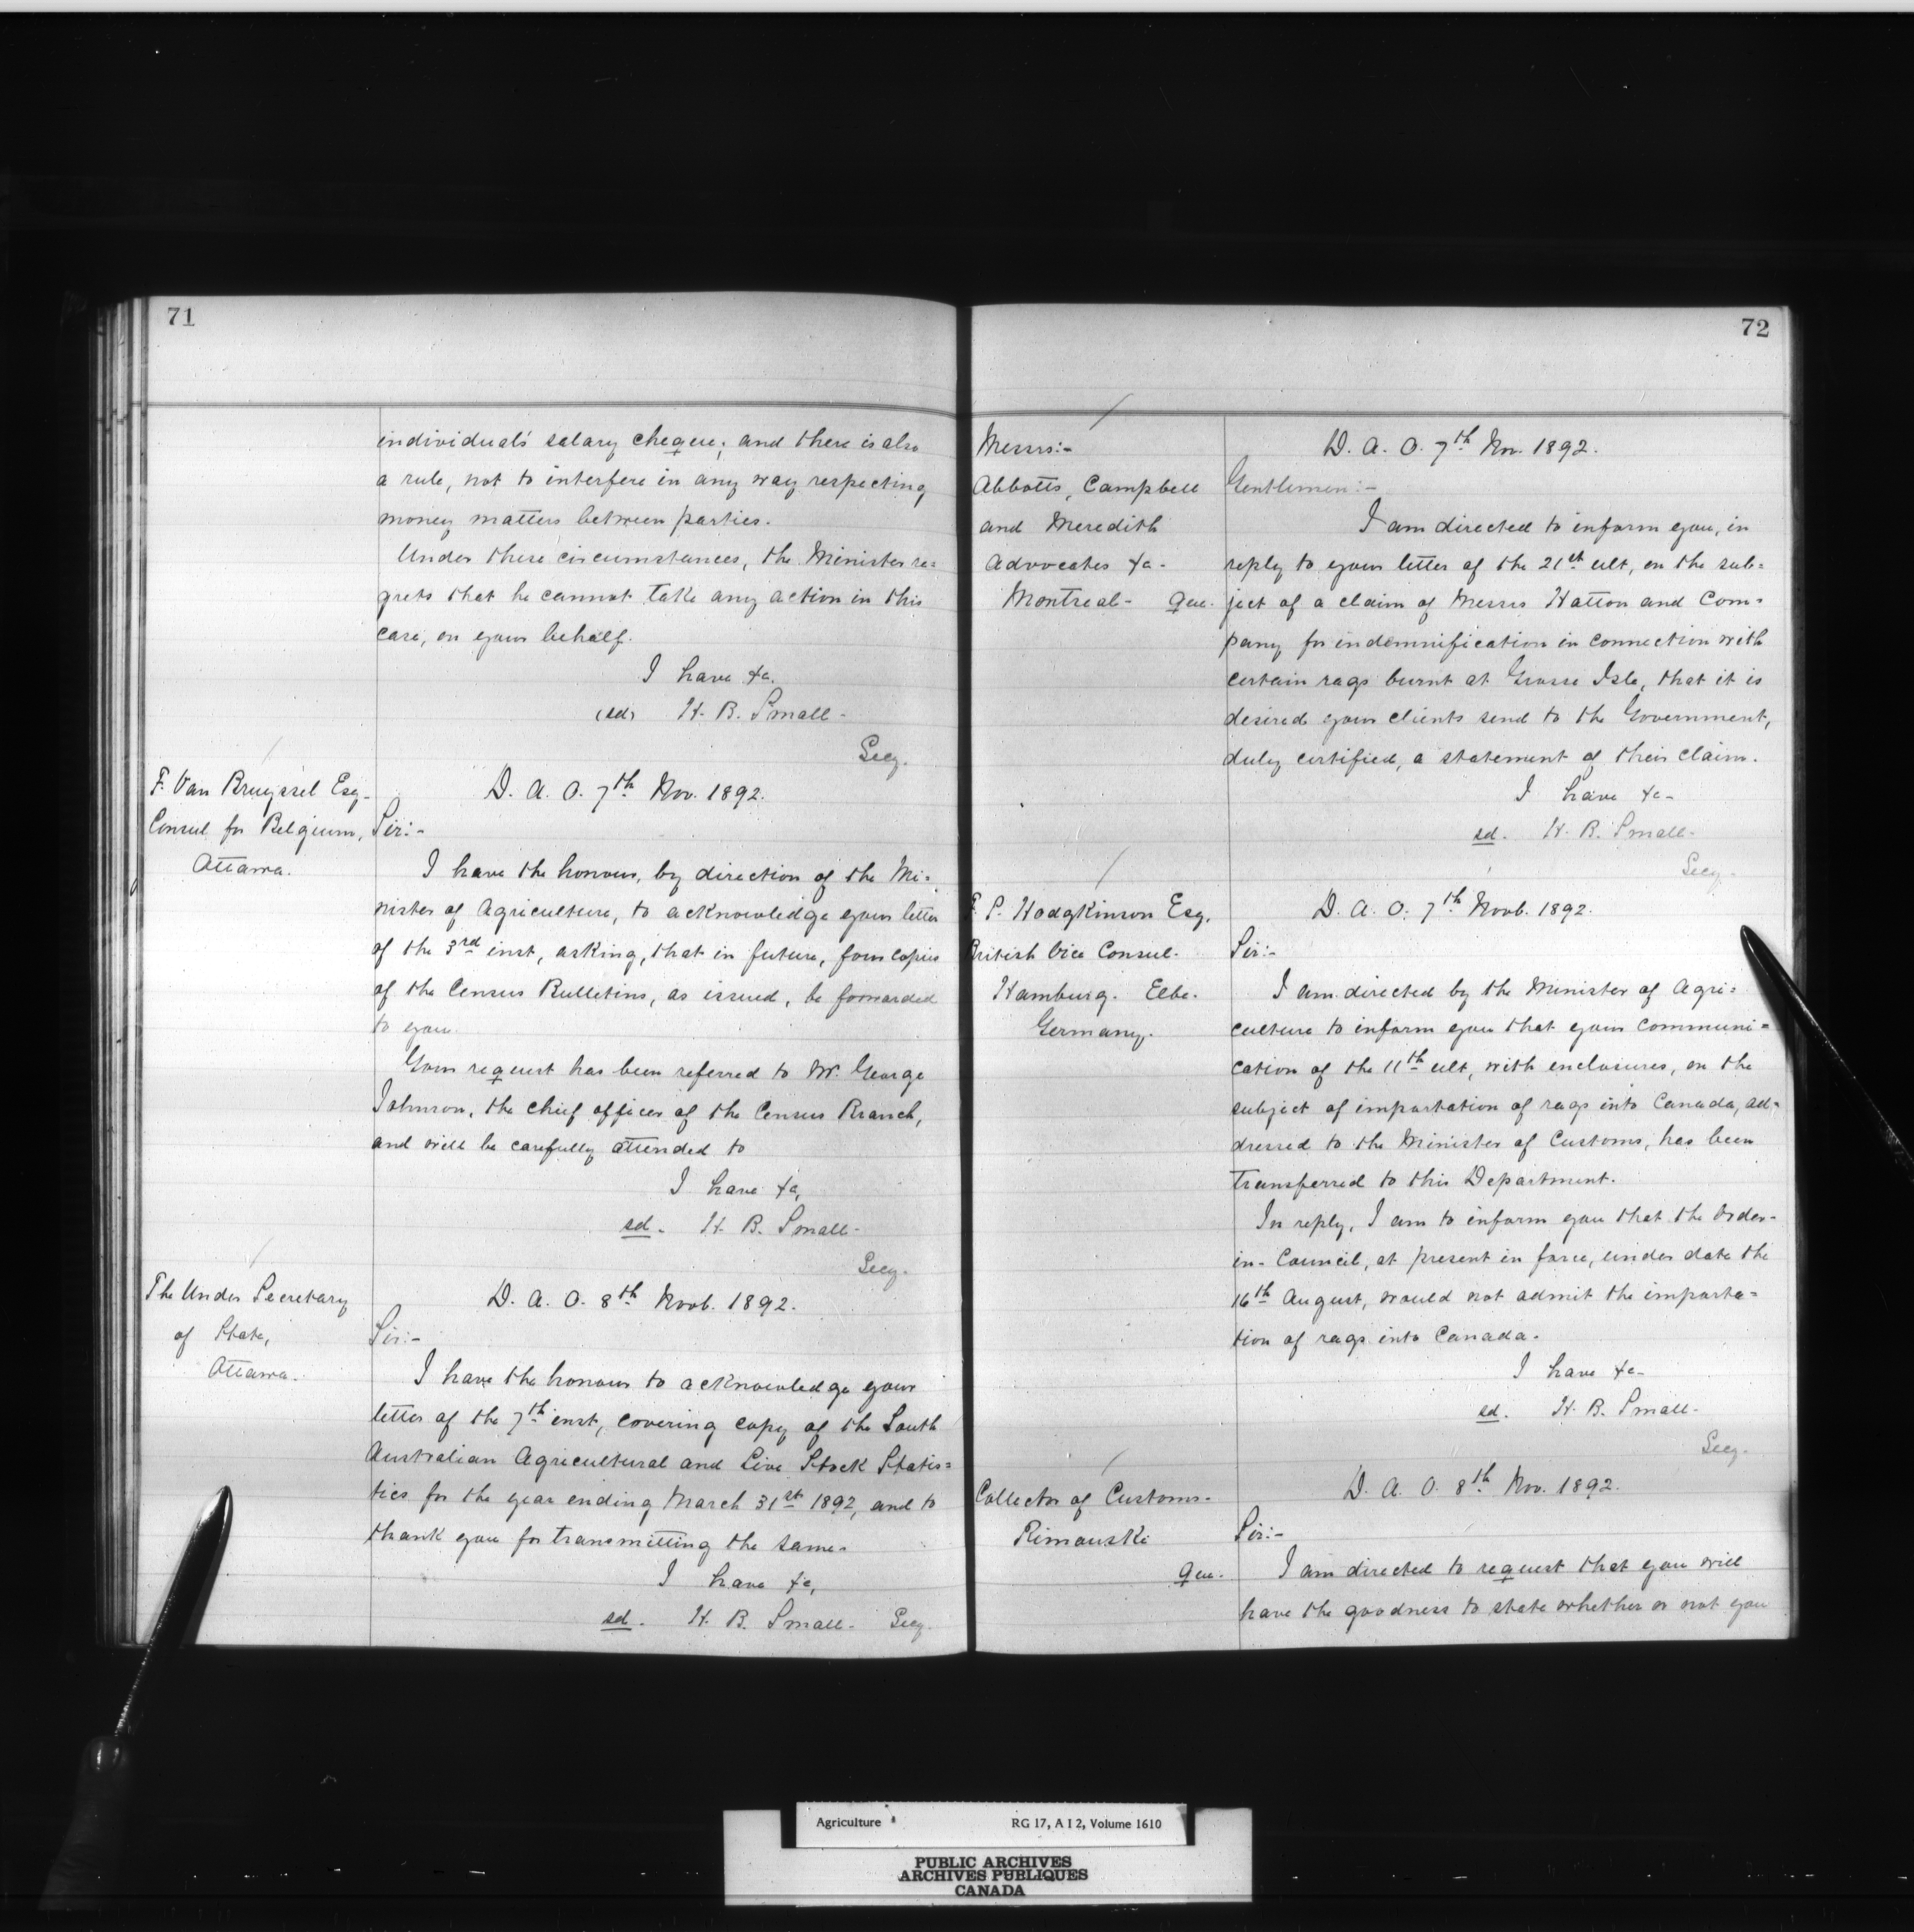 71
individual's salary cheque; and there is also
a rule, not to interfere in any way respecting
money matters between parties.
Under these circumstances, the Minister re=
grets that he cannot take any action in this
case, on your behalf.
I have &c.
(sd) H. B. Small-
Secy.
F. Van Bruyssel Esq-
Consul for Belgium,
Ottawa.
D. A. O. 7th Nov. 1892.
Sir:-
I have the honour, by direction of the Mi=
nister of Agriculture, to acknowledge your letter
of the 3rd inst, asking, that in future, four copies
of the Census Bulletins, as issued, be forwarded
to you.
Your request has been referred to Mr. George
Johnson, the chief officer of the Census Branch,
and will be carefully attended to
I have &c,
sd. H. B. Small-
Secy.
The Under Secretary
of State,
Ottawa.
D. A. O. 8th Novb. 1892.
Sir:-
I have the honour to acknowledge your
letter of the 7th inst, covering copy of the South
Australian Agricultural and Live Stock Statis=
tics for the year ending March 31st 1892, and to
thank you for transmitting the same.
I have &c,
sd. H. B. Small- Secy.
72
Messrs:-
Abbotts, Campbell
and Meredith
Advocates &c-
Montreal- Que.
D. A. O. 7th Nov. 1892.
Gentlemen:-
I am directed to inform you, in
reply to your letter of the 21st ult, on the sub=
ject of a claim of Messrs Hatton and Com=
pany for indemnification in connection with
certain rags burnt at Grosse Isle, that it is
desired your clients send to the Government,
duly certified, a statement of their claim.
I have &c-
sd. H. B. Small-
Secy-
P. Hodgkinson Esq.
British Vice Consul.
Hamburg. Elbe.
Germany.
D. A. O. 7th Novb. 1892.
Sir:-
I am directed by the Minister of Agri=
culture to inform you that your communi=
cation of the 11th ult, with enclosures, on the
subject of importation of rags into Canada, ad=
dressed to the Minister of Customs, has been
transferred to this Department.
In reply, I am to inform you that the Order-
in-Council, at present in force, under date the
16th August, would not admit the importa=
tion of rags into Canada.
I have &c-
sd. H. B. Small-
Secy-
Collector of Customs-
Rimouski
Que.
D. A. O. 8th Nov. 1892.
Sir:-
I am directed to request that you will
have the goodness to state whether or not you
Agriculture RG 17, A I 2, Volume 1610
PUBLIC ARCHIVES
ARCHIVES PUBLIQUES
CANADA